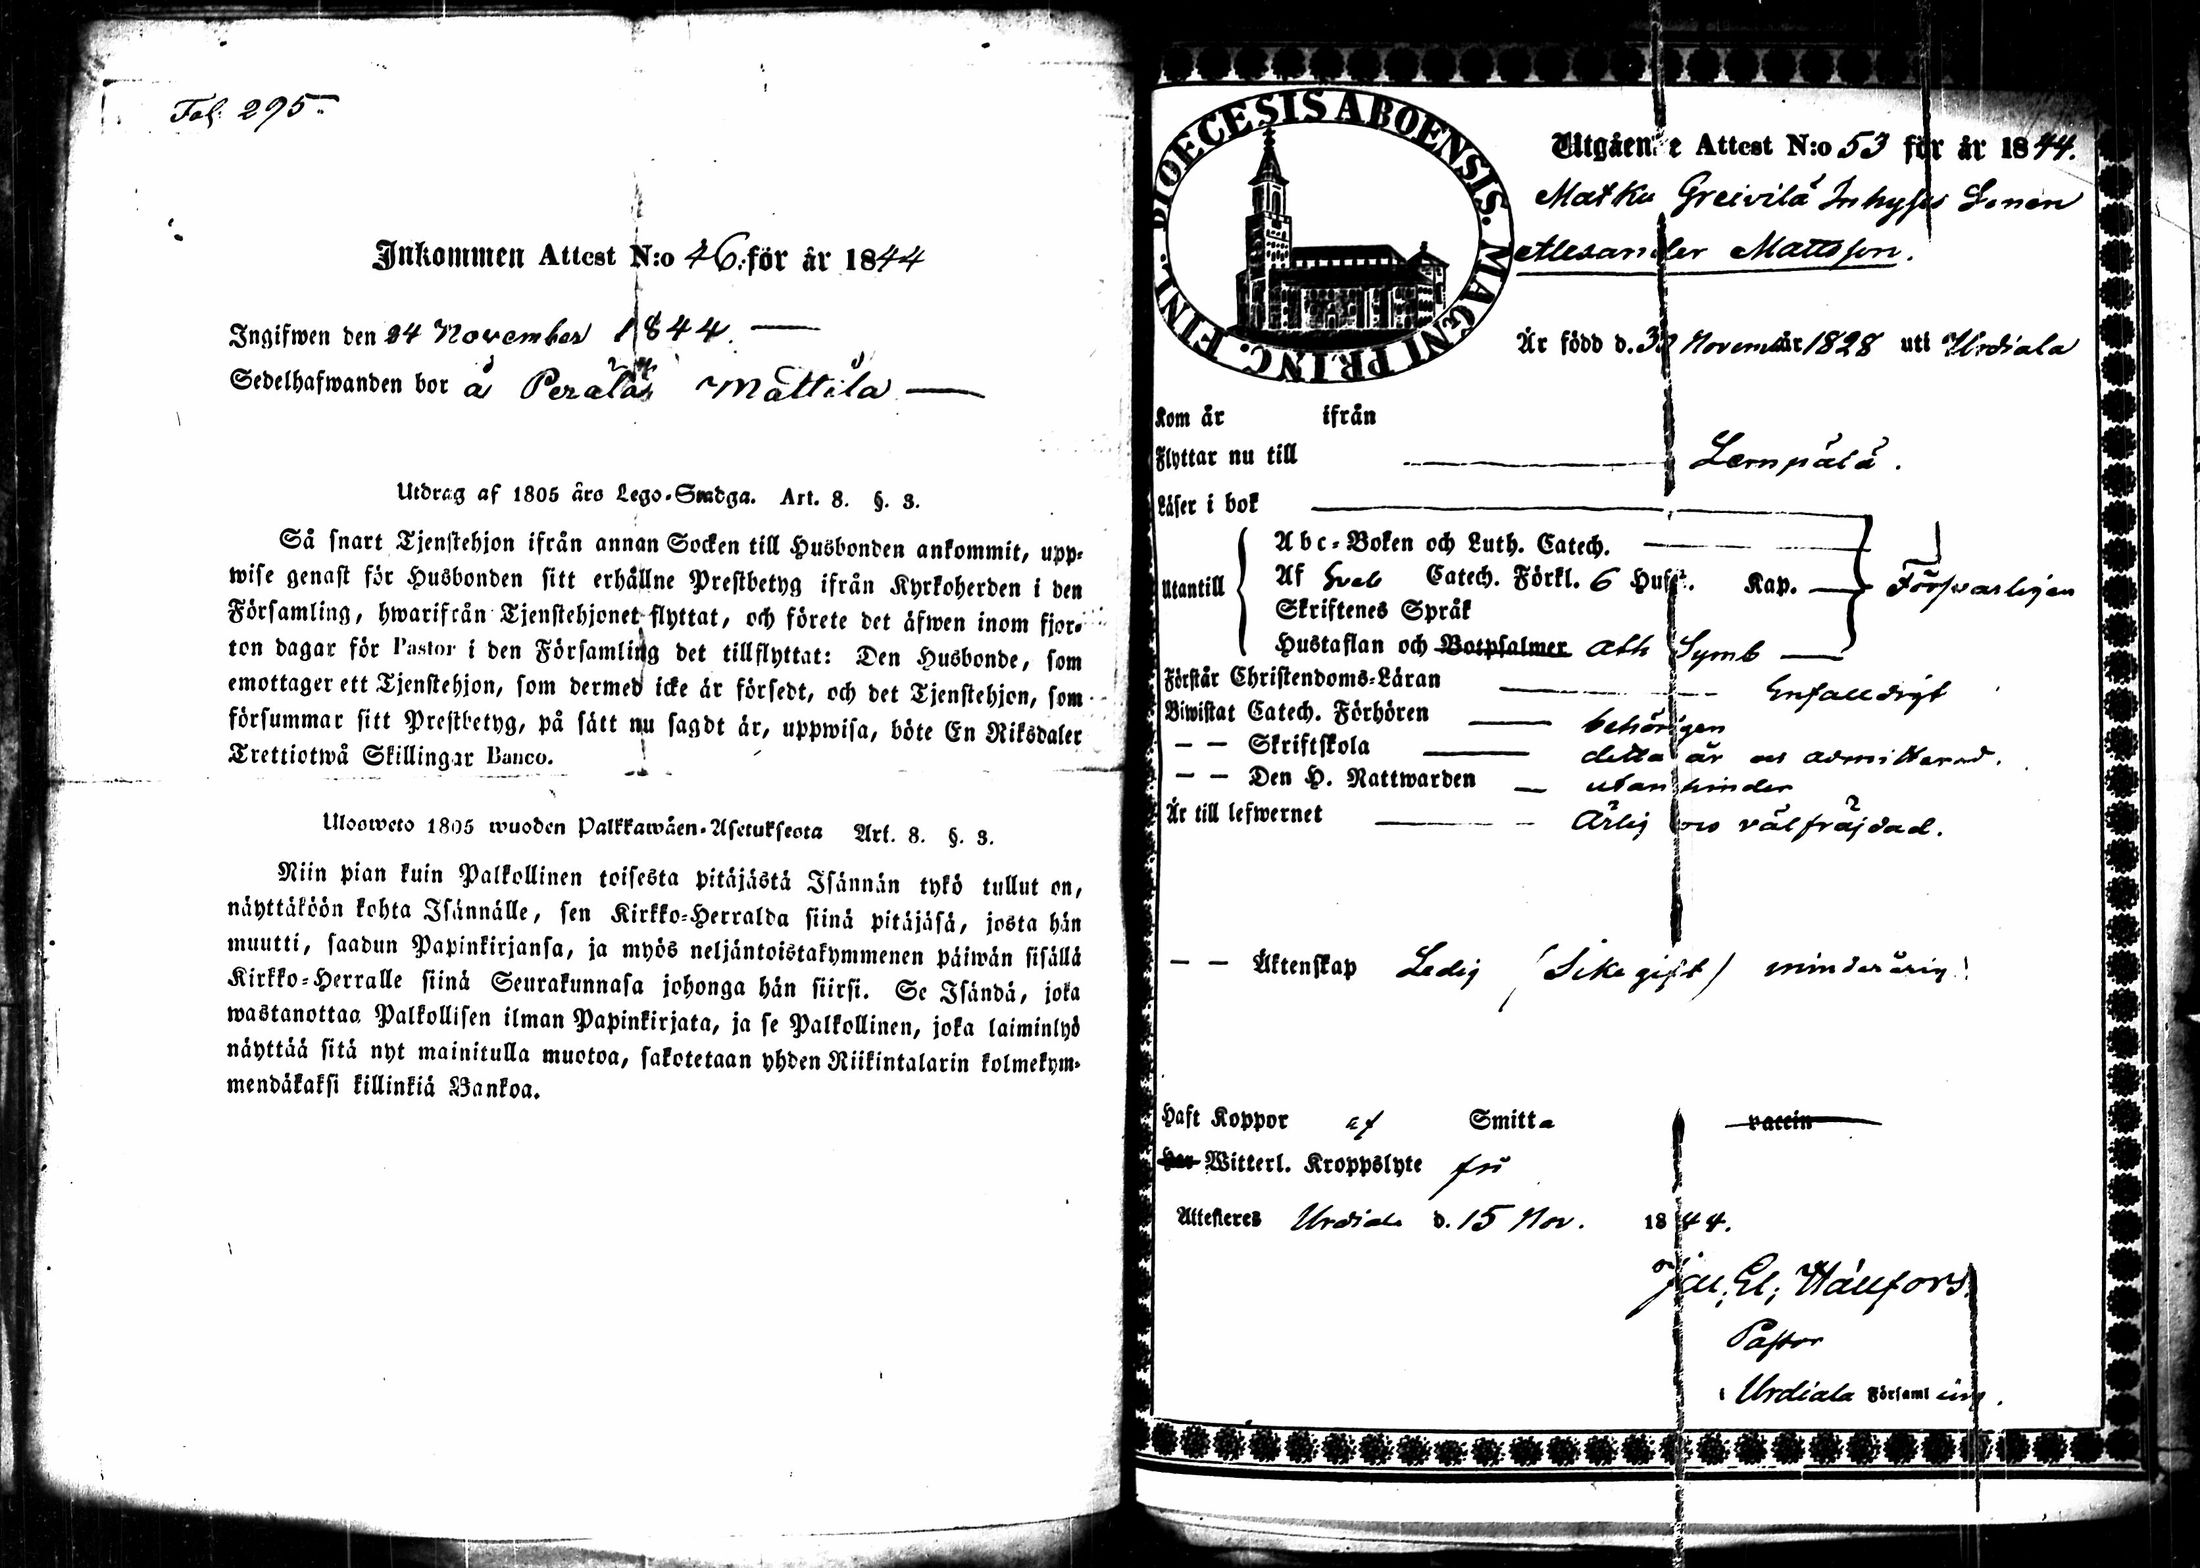 Fol. 295
Inkommen Attest N:o 46. för år 1844
Ingifwen den 24 November 1844.
Sedelhafwanden bor å Perälä Mattila
Utdrag af 1805 års Lego-Stadga. Art. 8. §. 3.
Så snart Tjenstehjon ifrån annan Socken till Husbonden ankommit, upp-
wise genast för Husbonden sitt erhållne Prestbetyg ifrån Kyrkoherden i den
Församling, hwarifrån Tjenstehjonet flyttat, och förete det äfwen inom fjor-
ton dagar för Pastor i den Församling det tillflyttat: Den Husbonde, som
emottager ett Tjenstehjon, som dermed icke är försedt, och det Tjenstehjon, som
försummar sitt Prestbetyg, på sätt nu sagdt är, uppwisa, böte En Riksdaler
Trettiotwå Skillingar Banco.
Ulosweto 1805 wuoden Palkkawäen-Asetuksesta Art. 8. §. 3.
Niin pian kuin Palkollinen toisesta pitäjästä Isännän tykö tullut on,
näyttäköön kohta Isännälle, sen Kirkko-Herralda siinä pitäjäsä, josta hän
muutti, saadun Papinkirjansa, ja myös neljäntoistakymmenen päiwän sisällä
Kirkko-Herralle siinä Seurakunnasa johonga hän siirsi. Se Isändä, joka
wastanottaa Palkollisen ilman Papinkirjata, ja se Palkollinen, joka laiminlyö
näyttää sitä nyt mainitulla muotoa, sakotetaan yhden Riikintalarin kolmekym-
mendäkaksi killinkiä Bankoa.
DIOECESIS ABOENSIS. MAGNI PRINC. FINL.
Utgående Attest N:o 53 för år 1844.
Matku Greivilä Inhyses Sonen
Alexander Mattsson.
Är född d. 30 Novem år 1828 uti Urdiala
Kom år ifrån
Flyttar nu till Lempälä.
Läser i bok
Utantill
Abc-Boken och Luth. Catech.
Af Sveb Catech. Förkl. 6 Huf. Kap. Försvarligen
Skriftenes Språk
Hustaflan och Botpsalmer Ath Symb
Förstår Christendoms-Läran Enfalldigt
Biwistat Catech. Förhören behörigen
— — Skriftskola detta år och admitterad.
— — Den H. Nattwarden utan hinder
Är till lefwernet Ärlig och välfräjdad.
— — Äktenskap Ledig (Icke gift) minderårig
Haft Koppor af Smitta vaccin
Har Witterl. Kroppslyte fri
Attesteres Urdiala d. 15 Nov. 1844.
Hällfors
Pastor
i Urdiala Församling.